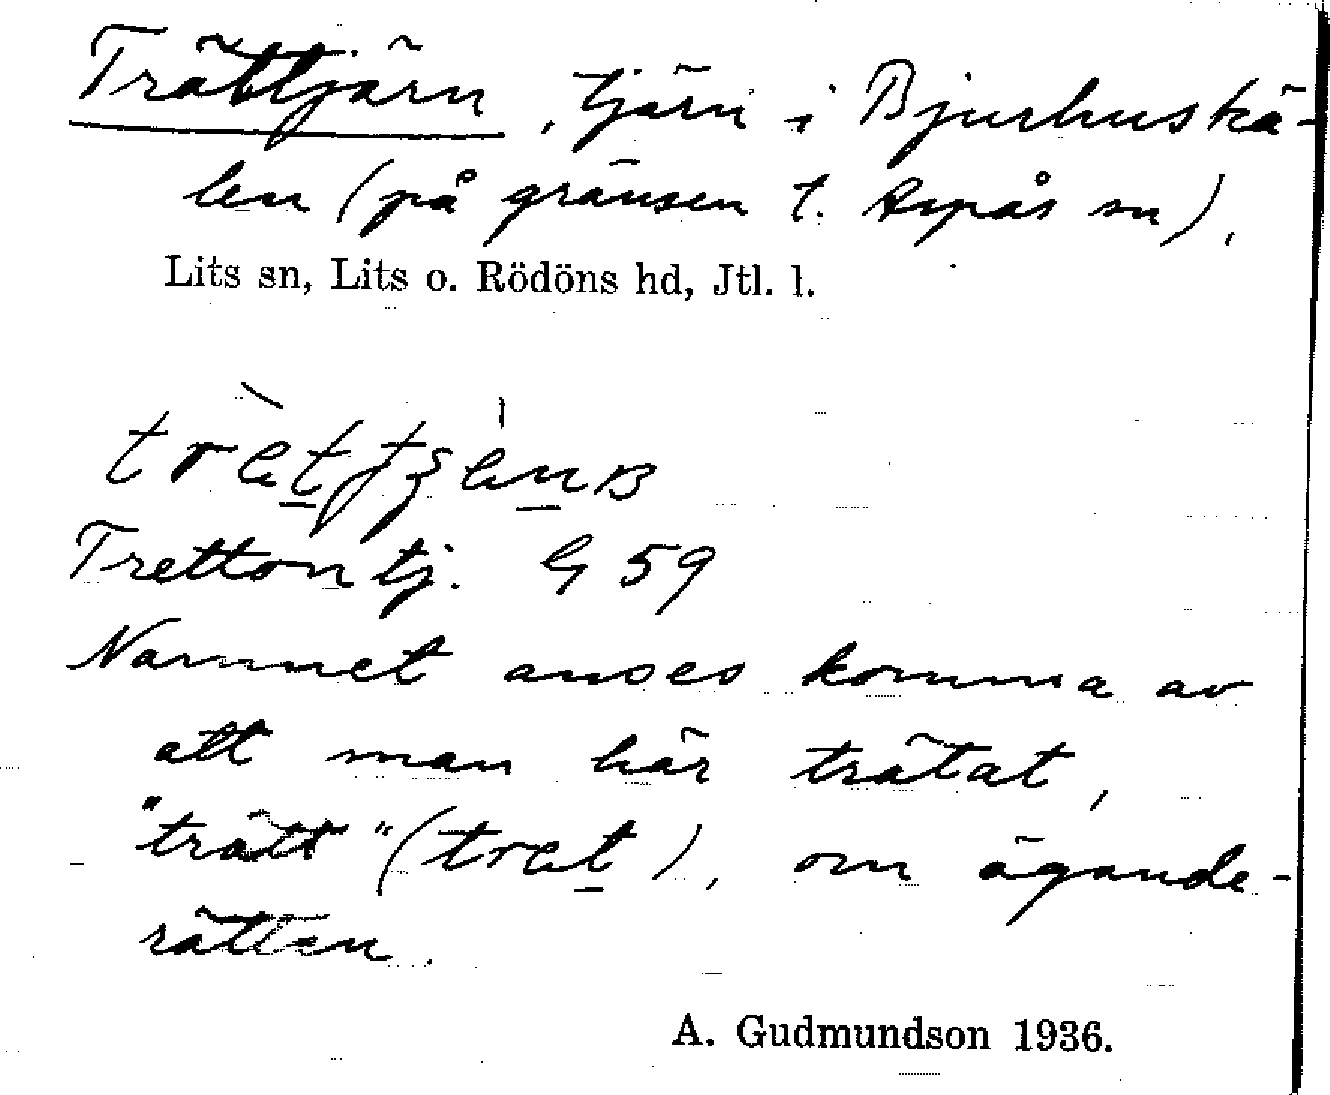 Trättjärn, tjärn i Bjurhuskä-
len (på gränsen t. Aspås sn),
Lits sn, Lits o. Rödöns hd, Jtl. l.
Trettontj. G 59
Namnet anses komma av
att man här trätat,
"trätt" (tret), om ägande-
rätten.
A. Gudmundson 1936.